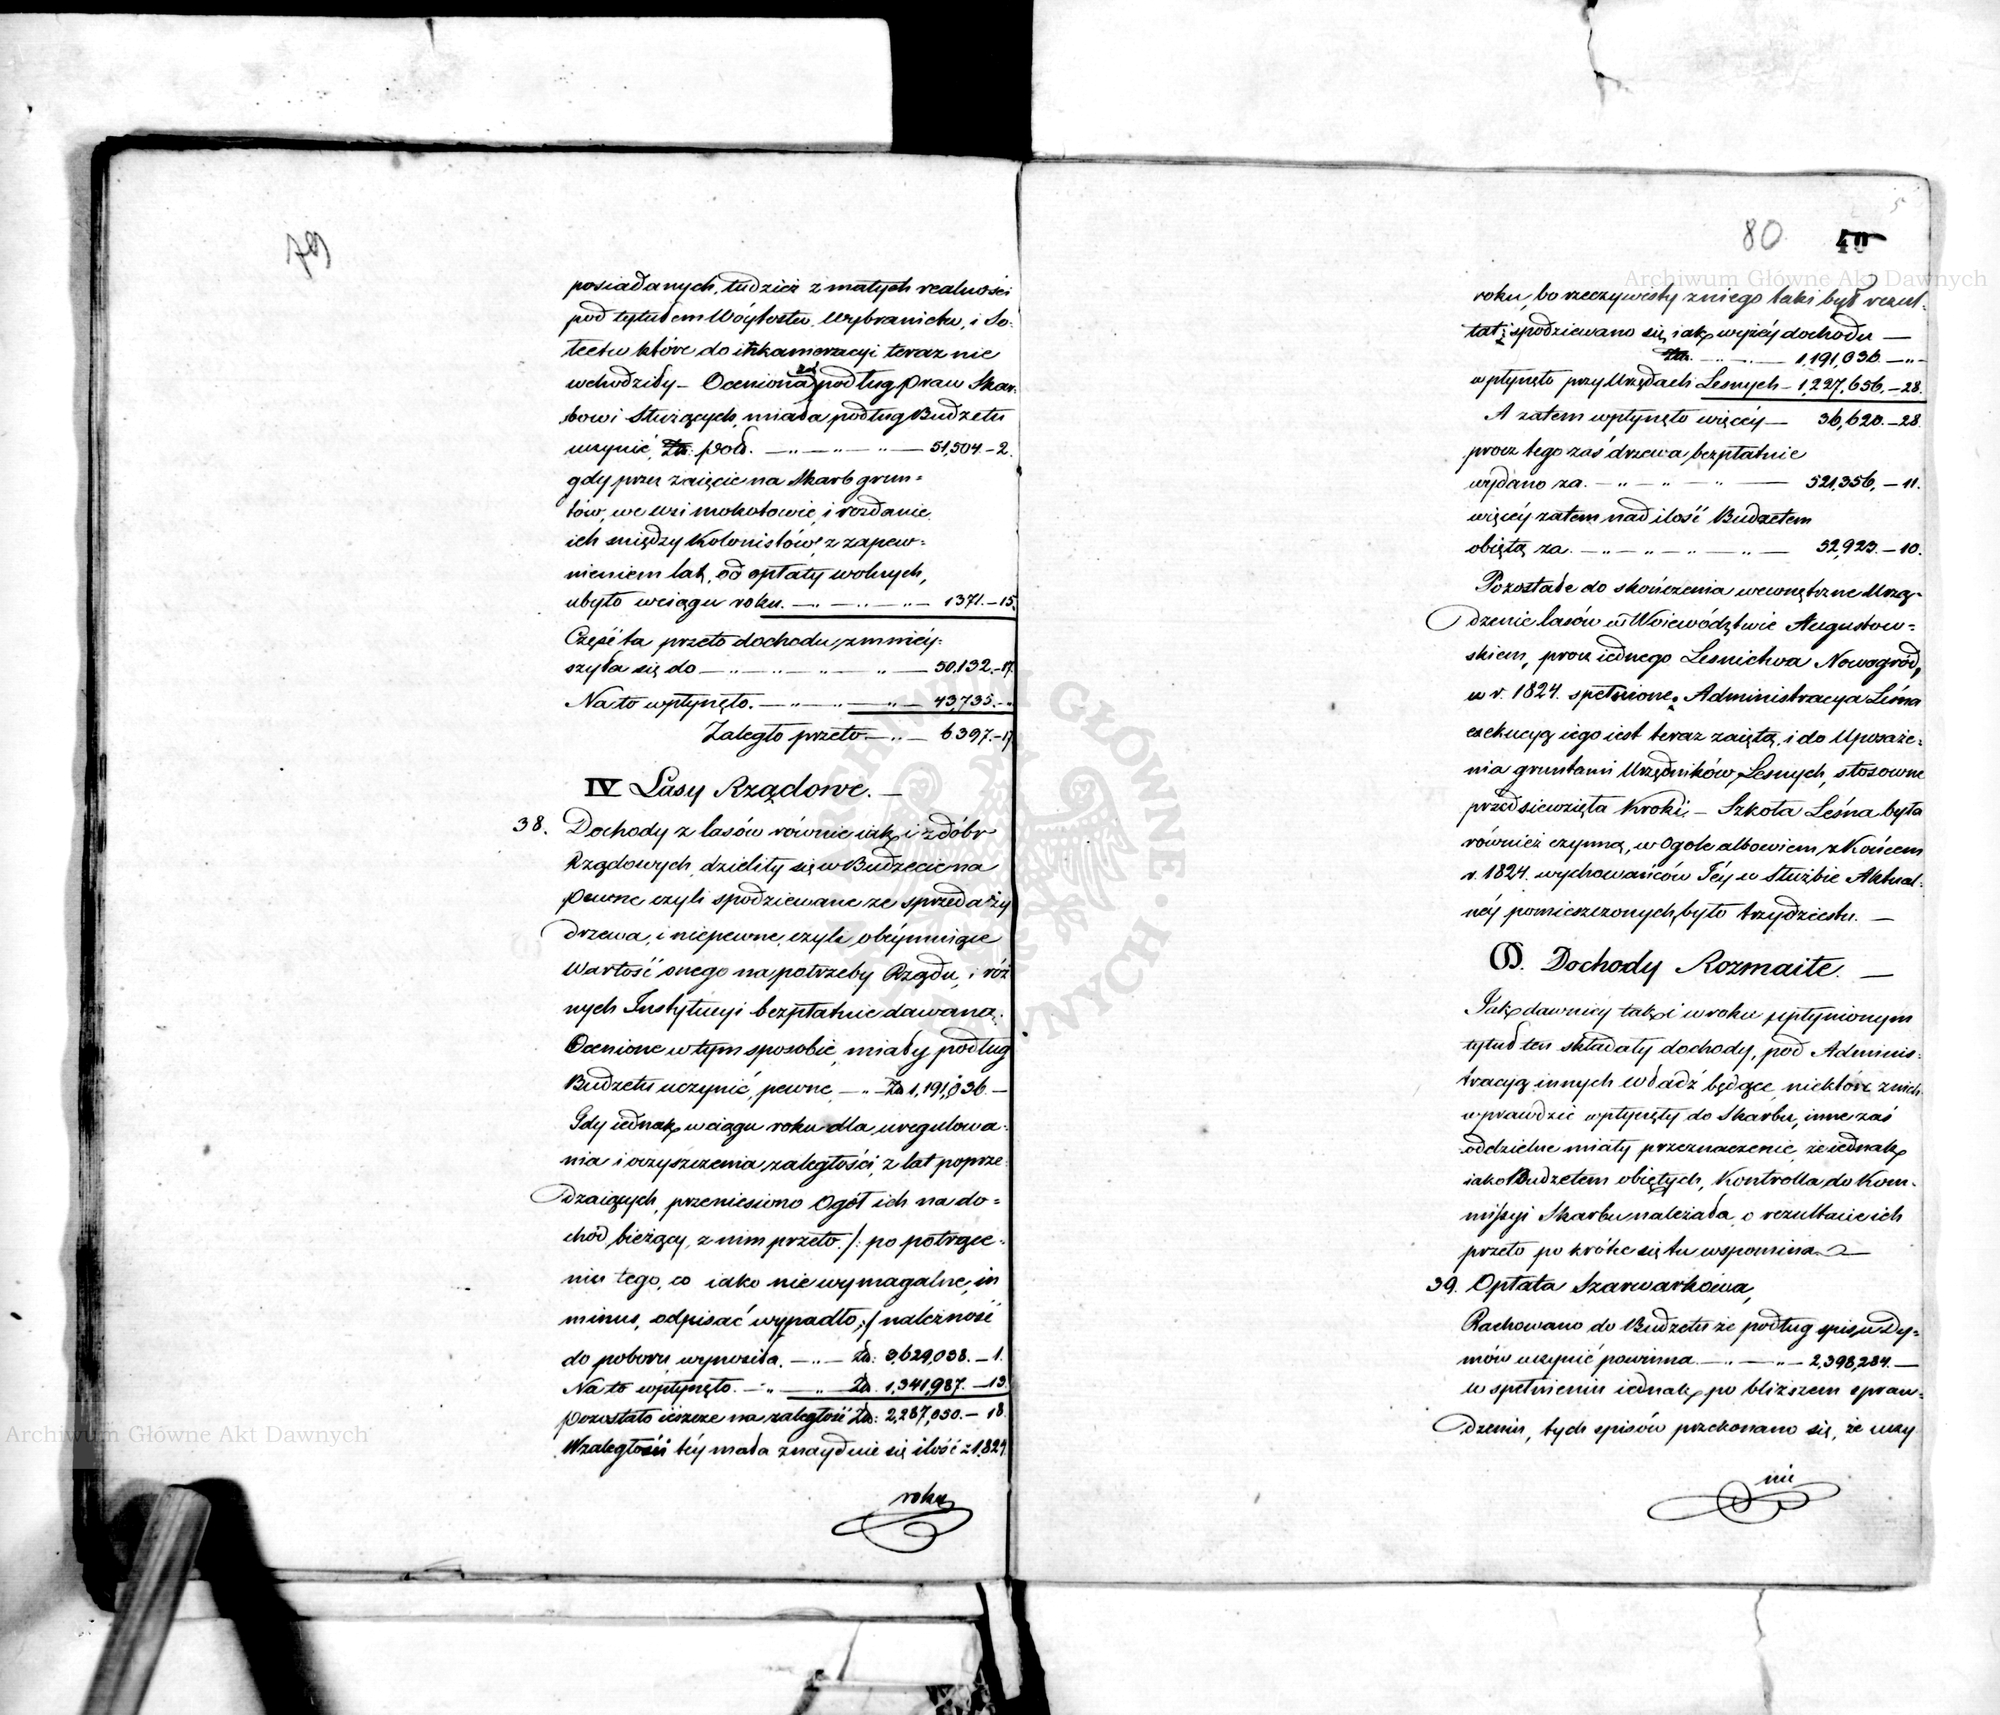 79
posiadanych, tudzież z małych realności
pod tytułem Wóytostw, Wybranictw, i So-
łectw które do inkameracyi teraz nie
wchodziły — Oceniona podług praw Skar-
bowi służących, miała podług Budżetu
uczynić, — 51,504.—2.
gdy przez zaięcie na Skarb grun=
tów, we wsi mokotowie, i rozdanie
ich między Kolonistów, z zapew=
nieniem lat, od opłaty wolnych,
ubyło wciągu roku. — 1371.—15.
Część ta przeto dochodu zmniéy-
szyła się do — 50,132.—17.
Na to wpłynęło. — 43,735.—„
Zaległo przeto — „ — 6397.—17
IV Lasy Rządowe. —
38. Dochody z lasów równie iak i z dóbr
Rządowych, dzieliły się w Budżecie na
pewne czyli spodziewane ze sprzedaży
drzewa, i niepewne, czyli obéymuiące
Wartość onego na potrzeby Rządu, i róż
nych Instytucyi bezpłatnie dawaną.
Ocenione w tym sposobie, miały podług
Budżetu uczynić, pewne, — „ — Zł. 1,191,036.—
Gdy iednak w ciągu roku dla uregulowa-
nia i oczyszczenia zaległości, z lat poprze-
dzaiących, przeniesiono Ogół ich na do=
chód bieżący, z nim przeto /: po potrące-
niu tego, co iako nie wymagalne, in
minus, odpisać wypadło, :/ należność
do poboru wynosiła. — „ — Zł: 3,629,038.—1.
Na to wpłynęło. — „ — „ Zł. 1,341,987.—13.
pozostało ieszcze na zaległość Zł: 2,287,050.—18.
W zaległości téy mała znayduie się ilość z 1,824.
roku
80 40
roku, bo rzeczywisty z niego taki był rezul-
tat; spodziewano się iak wyżéy dochodu —
— 1,191,036.—„—
wpłynęło przy Urzędach Leśnych — 1,227,656.—28.
A zatem wpłynęło więcéy — 36,620.—28.
procz tego zaś drzewa bezpłatnie
wydano za. — 521,356,—11.
więcéy zatem nad ilość Budżetem
obiętą za. — 52,923.—10.
Pozostałe do skończenia wewnętrzne Urzą-
dzenie lasów w Woiewództwie Augustow=
skiem, procz iednego Leśnictwa Nowogród,
w r. 1824. spełnione; Administracya Leśna
exekucyą iego iest teraz zaiętą, i do Uposaże-
nia gruntami Urzędników Leśnych, stosowne
przedsiewzięła Kroki; — Szkoła Leśna była
również czynną, w Ogole albowiem, z Końcem
r. 1824. wychowańców Jéy w Służbie Aktual-
néy pomieszczonych, było trzydziestu. —
D. Dochody Rozmaite. —
Jak dawniéy tak i w roku upłynionym
tytuł ten składały dochody, pod Adminis-
tracyą innych Władz będące, niektóre z nich
wprawdzie wpłynęły do Skarbu, inne zaś
oddzielne miały przeznaczenie, że iednak
iako Budżetem obiętych, Kontrolla do Kom-
missyi Skarbu należała, o rezultacie ich
przeto po krótce się tu wspomina. —
39. Opłata Szarwarkowa,
Rachowano do Budżetu że podług spisu Dy=
mów uczynić powinna — „ — 2,398,284.—
w spełnieniu iednak po bliższem spraw-
dzeniu, tych spisów przekonano się, że uczy
nić